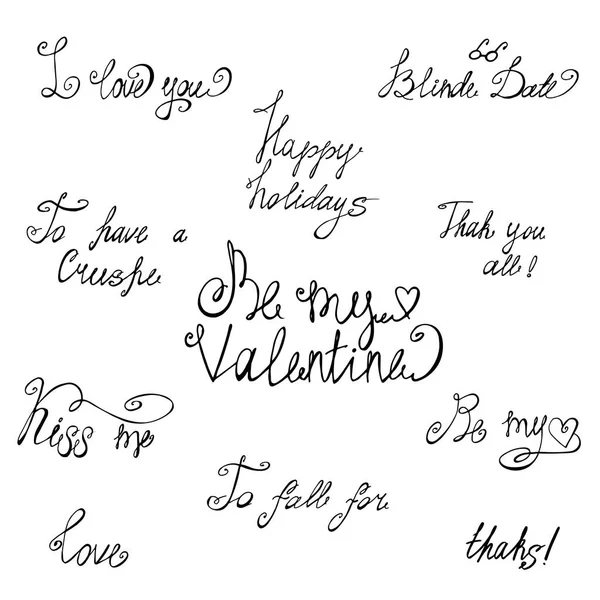 I love you
Blinde Date
Happy
holidays
To have a
Crushe
Thak you
all!
Be my
Valentine
Kiss me
Be my
To fall for
love
thaks!